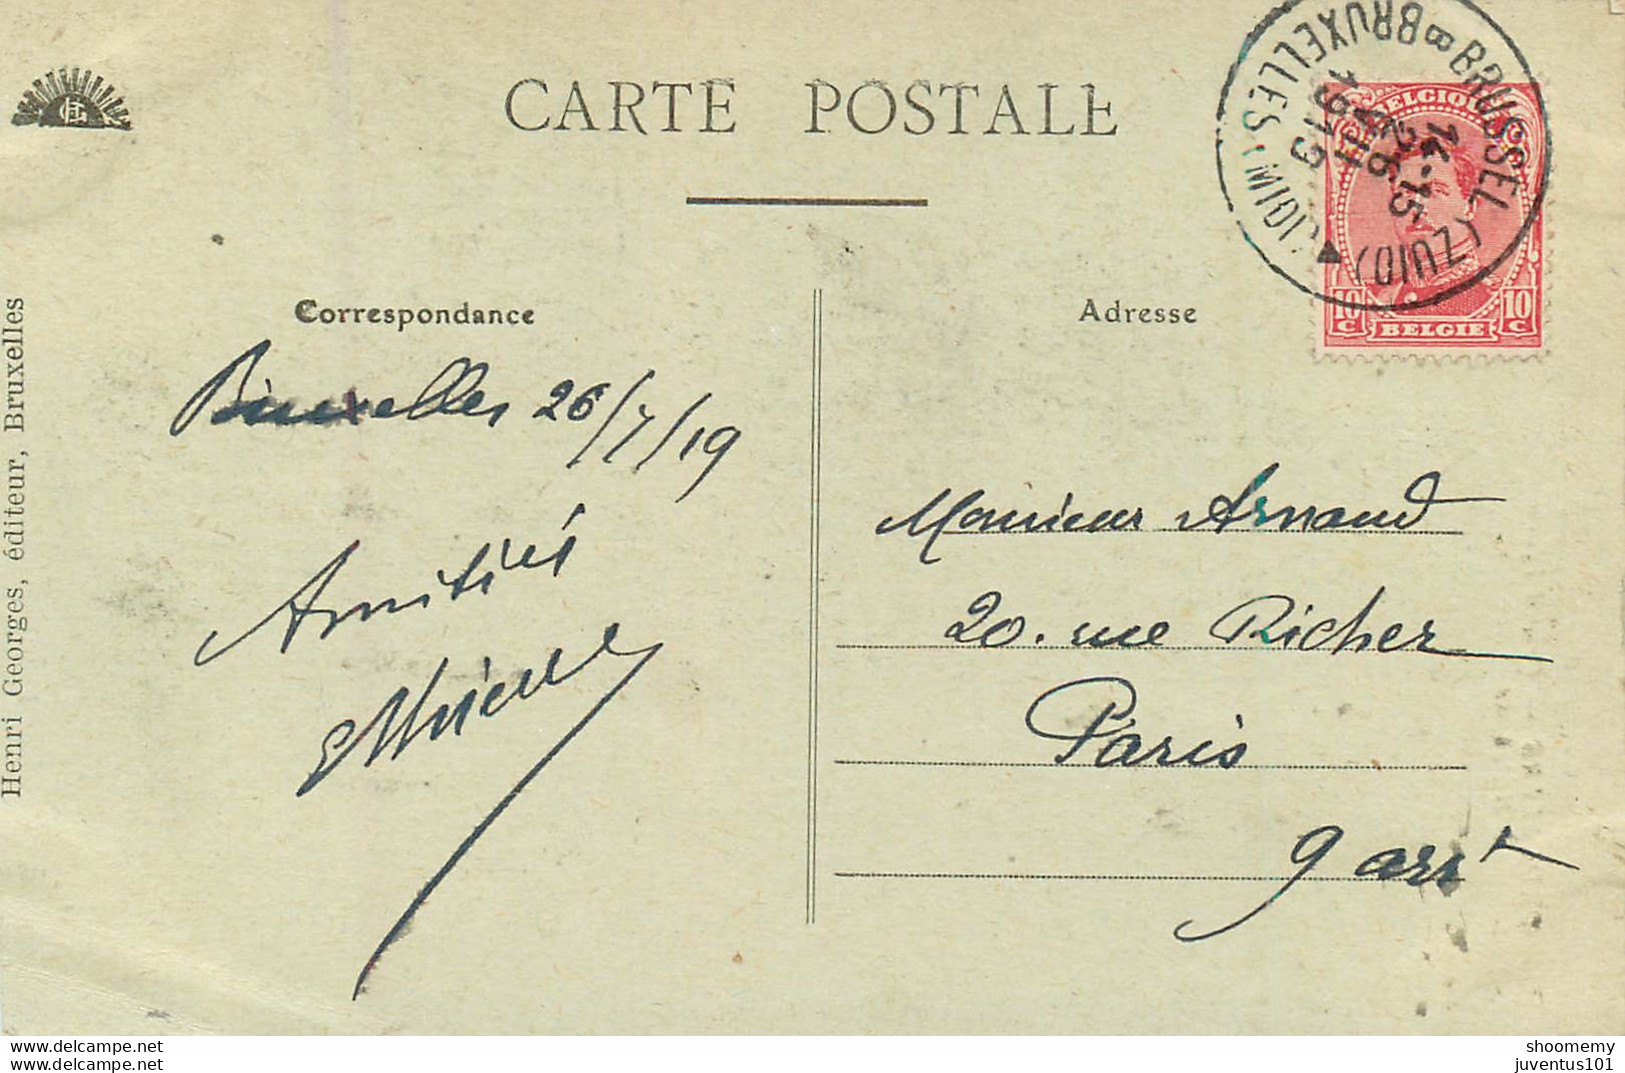 CARTE POSTALE
BRUSSEL (ZUID)
8 BRUXELLES
14-15
26
VII
1919
BELGIQUE
10 C BELGIE 10 C
Correspondance
Adresse
Bruxelles 26/7/19
Amitiés
Monsieur Arnaud
20. rue Richer
Paris
9 arrt
Henri Georges, éditeur, Bruxelles
www.delcampe.net
www.delcampe.net
shoomemy
juventus101